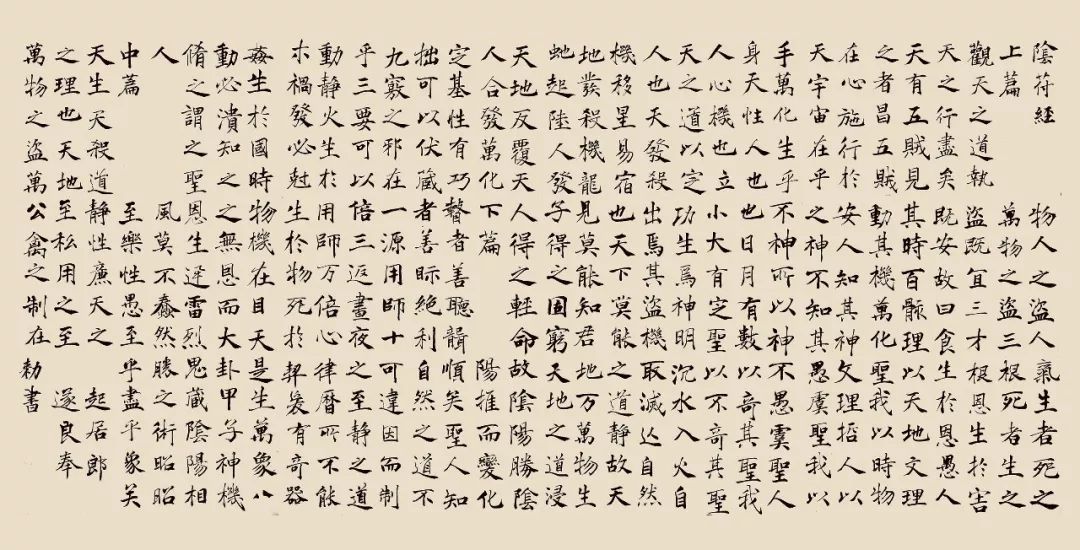 陰符經
上篇
觀天之道執
天之行盡矣
天有五賊見
之者昌五賊
在心施行於
天宇宙在乎
手萬化生乎
身天性人也
人心機也立
天之道以定
人也天發殺
機移星易宿
地發殺機龍
虵起陸人發
天地反覆天
人合發萬化
定基性有巧
拙可以伏藏
九竅之邪在
乎三要可以
動靜火生於
木禍發必尅
姦生於國時
動必潰知之
脩之謂之聖
人
中篇
天生天殺道
之理也天地
萬物之盜萬
物人之盜人
萬物之盜三
盜既宜三才
既安故曰食
其時百骸理
動其機萬化
安人知其神
之神不知其
不神所以神
也日月有數
小大有定聖
功生焉神明
出焉其盜機
也天下莫能
見莫能知君
子得之固窮
人得之輕命
下篇
瞽者善聽聾
者善眎絕利
一源用師十
倍三返晝夜
用師万倍心
生於物死於
物機在目天
之無恩而大
恩生迅雷烈
風莫不蠢然
至樂性愚至
靜性廉天之
至私用之至
公禽之制在
氣生者死之
根死者生之
根恩生於害
生於恩愚人
以天地文理
聖我以時物
文理哲人以
愚虞聖我以
不愚虞聖人
以奇其聖我
以不奇其聖
沉水入火自
取滅亡自然
之道靜故天
地万萬物生
天地之道浸
故陰陽勝陰
陽推而變化
順矣聖人知
自然之道不
可違因而制
之至靜之道
律曆所不能
契爰有奇器
是生萬象八
卦甲子神機
鬼藏陰陽相
勝之術昭昭
乎盡乎象矣
起居郎
遂良奉
勑書